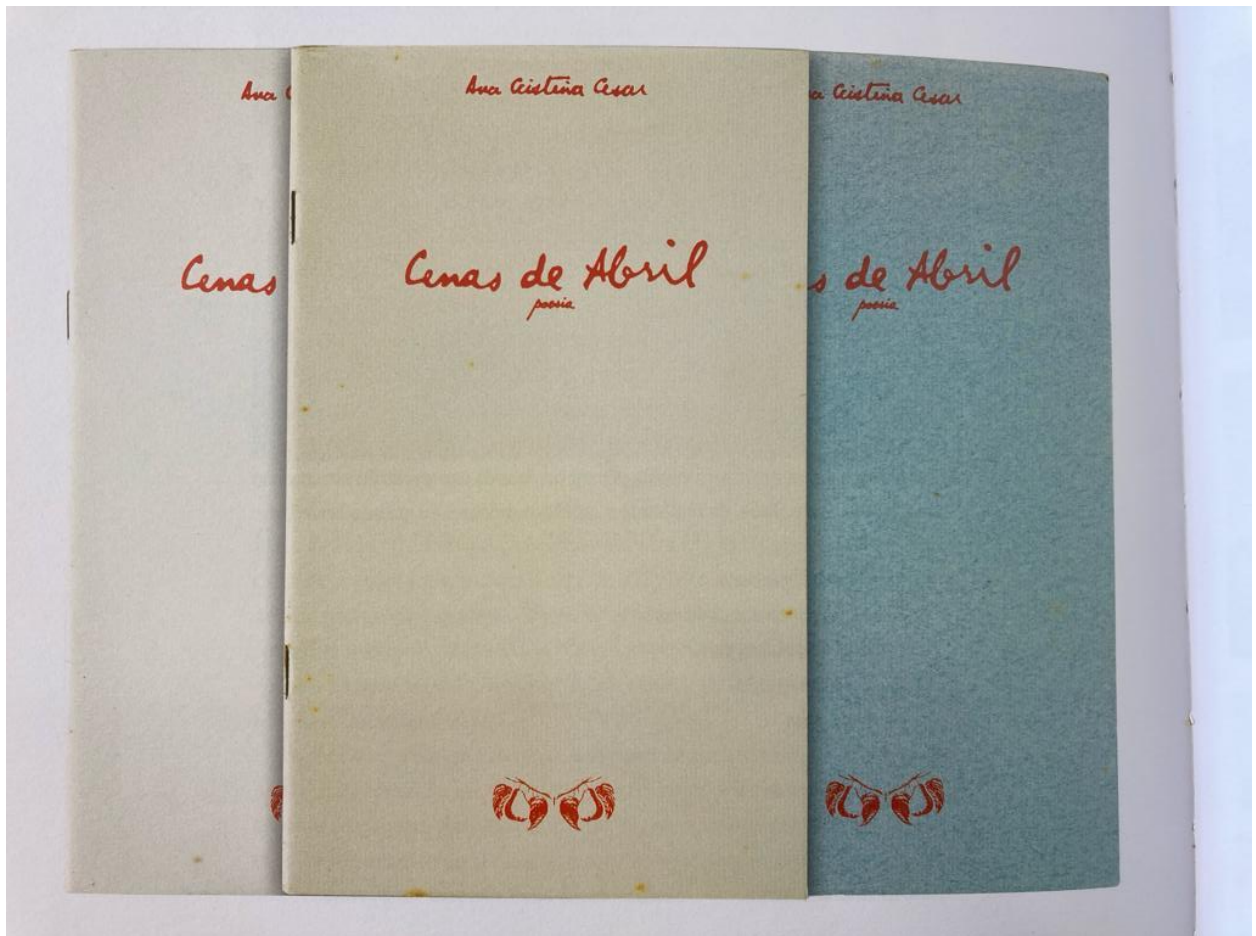 Ana
Cenas
Ana Cristina Cesar
Cenas de Abril
poesia
Cristina Cesar
de Abril
poesia